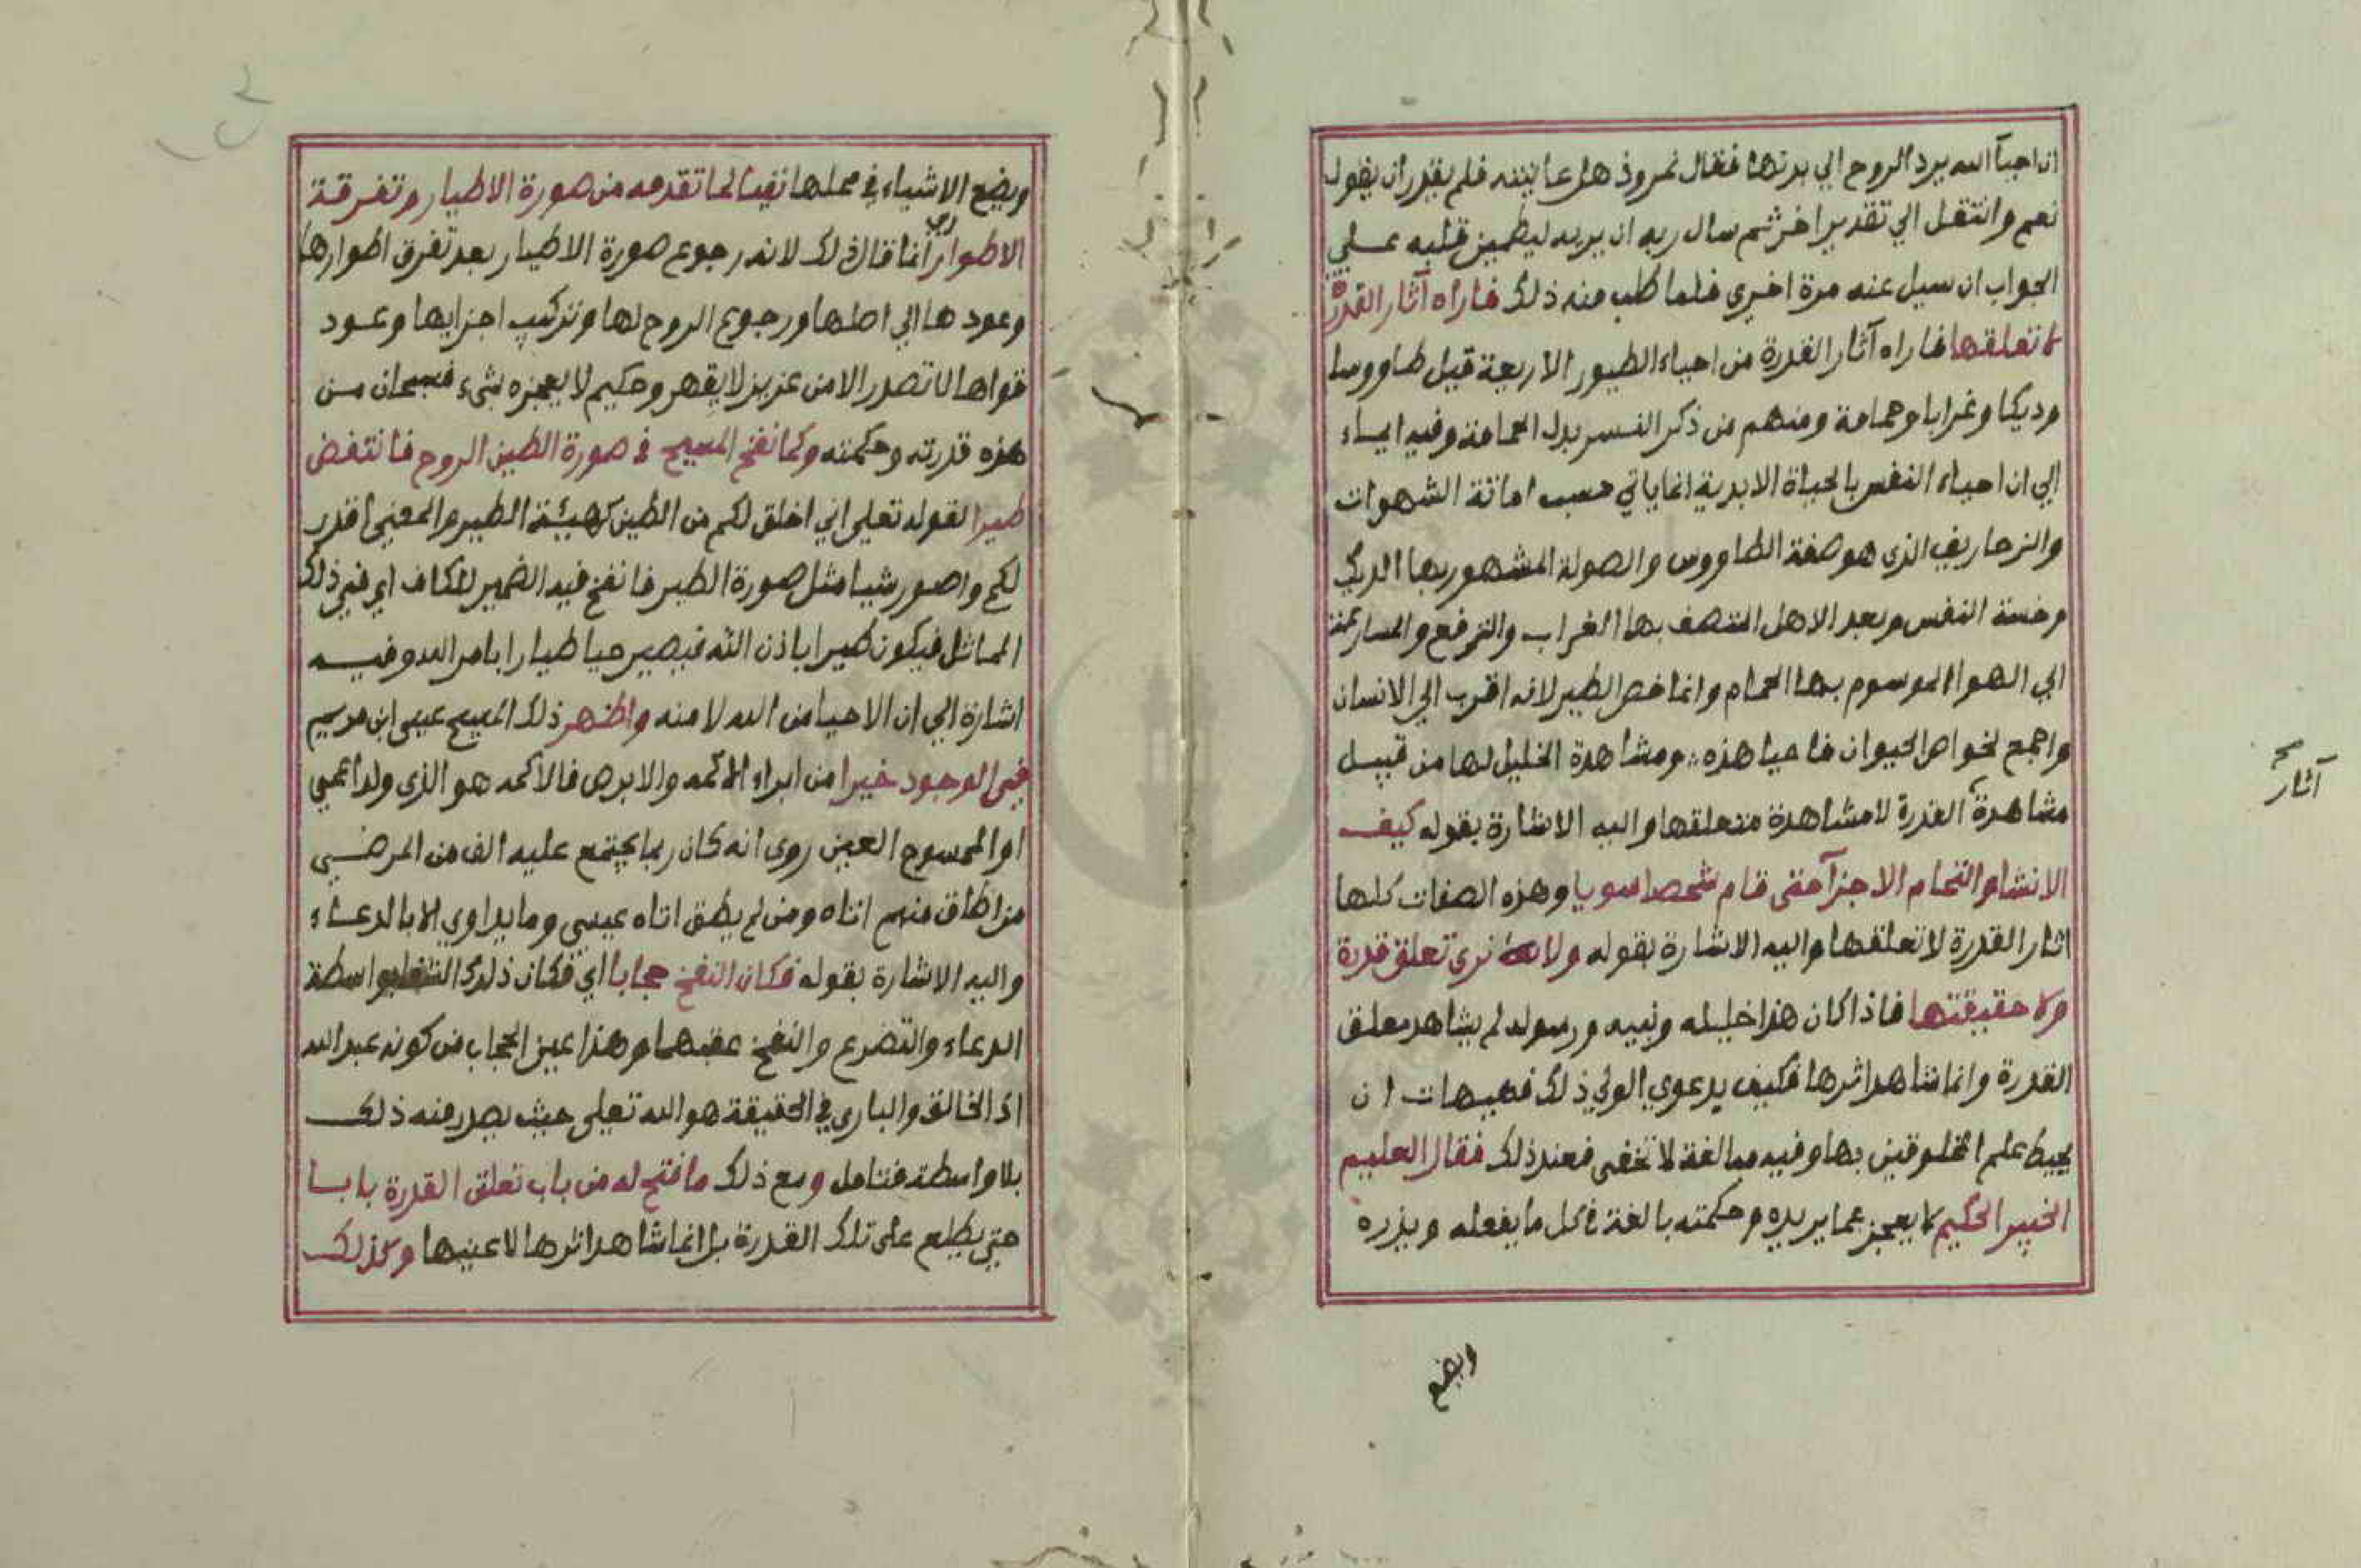 ان احيآ الله يرد الروح الي بدنها فقال نمروذ هل عاينته فلم يقدر ان يقول
نعم وانتقل الي تقدير اخر ثم سال ربه ان يريه ليطمين قلبه علي
الجواب ان سيل عنه مرة اخري فلما طلب منه ذلك فاراه آثار القدرة
لا تعلقها فاراه آثار القدرة من احياء الطيور الاربعة قيل طاووسا
وديكا وغرابا وحمامة ومنهم من ذكر النسر بدل الحمامة وفيه ايماء
الي ان احياء النفس بالحياة الابدية انما ياتي حسب اماتة الشهوات
والزخاريف الذي هو صفة الطاووس والصولة المشهور بها الديك
وخسة النفس وبعد الاهل المتصف بها الغراب والترفع والمسارعة
الي الهوا الموسوم بها الحمام وانما خص الطير لانه اقرب الي الانسان
واجمع لخواص الحيوان فاحيا هذه ومشاهدة الخليل لها من قبيل
مشاهدة القدرة لا مشاهدة متعلقها واليه الاشارة بقوله كيف
الانشا والتحام الاجزآ حتى قام شخصا سويا وهذه الصفات كلها
اثار القدرة لا تعلقها واليه الاشارة بقوله ولا نرى تعلق قدرة
ولا حقيقتها فاذا كان هذا خليله ونبيه ورسوله لم يشاهد معلق
القدرة وانما شاهد اثرها فكيف يدعوي الولي ذلك فهيهات ان
يحيط علم المخلوقين بها وفيه مبالغة لا تخفى فعند ذلك فقال العليم
الخبير الحكيم لا يعجز عما يريده وحكمته بالغة في كل ما يفعله ويذره
ويضع
آثار
صح
ويضع الاشياء في محلها تقينا لما تقدمه من صورة الاطيار وتفرقة
الاطوار انما قال ذلك لانه رجوع صورة الاطيار بعد تفرق اطوارها
وعودها الي اصلها ورجوع الروح لها وتركيب اجزايها وعود
قواها لا تصدر الا من عزيز لا يقهر وحكيم لا يعجزه شيء فسبحان من
هذه قدرته وحكمته وكما نفخ المسيح في صورة الطين الروح فانتفض
طيرا لقوله تعلى اني اخلق لكم من الطين كهيئة الطير والمعني اقدر
لكم واصور شيا مثل صورة الطير فانفخ فيه الضمير للكاف اي في ذلك
المماثل فيكون طيرا باذن الله فيصير حيا طيارا بامر الله وفيه
اشارة الي ان الاحيا من الله لا منه واظهر ذلك المسيح عيسى ابن مريم
في الوجود خيرا من ابراء الاكمه والابرص فالاكمه هو الذي ولد اعمي
او الممسوح العين روى انه كان ربما يجتمع عليه الف من المرضي
من اطاق منهم اتاه ومن لم يطق اتاه عيسى وما يداوي الا بالدعاء
واليه الاشارة بقوله فكان النفخ حجابا اي فكان ذلك بواسطة
الدعاء والتضرع والنفخ عقبهما وهذا عين الحجاب من كونه عبد الله
اذ الخالق والباري في الحقيقة هو الله تعلى حيث يصدر منه ذلك
بلا واسطة فتامل ومع ذلك ما فتح له من باب تعلق القدرة بابا
حتي يطلع على تلك القدرة بل انما شاهد اثرها لا عينها وكذلك